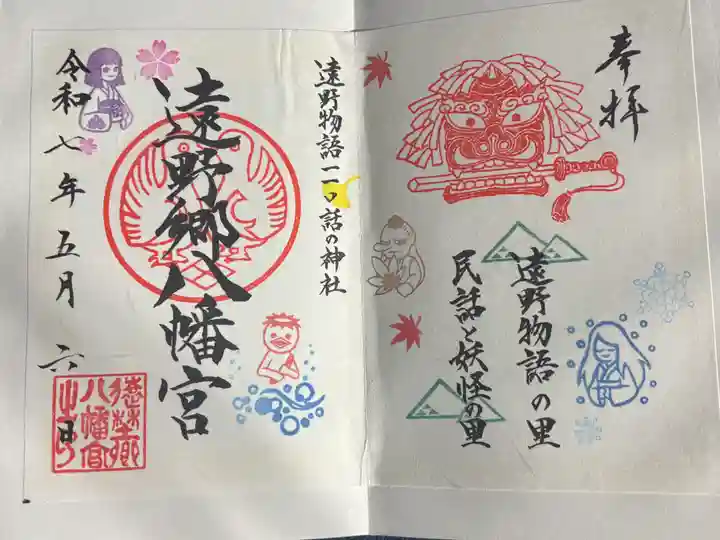 奉拝
遠野物語の里
民話と妖怪の里
遠野物語一一〇話の神社
遠野郷八幡宮
令和七年五月六日